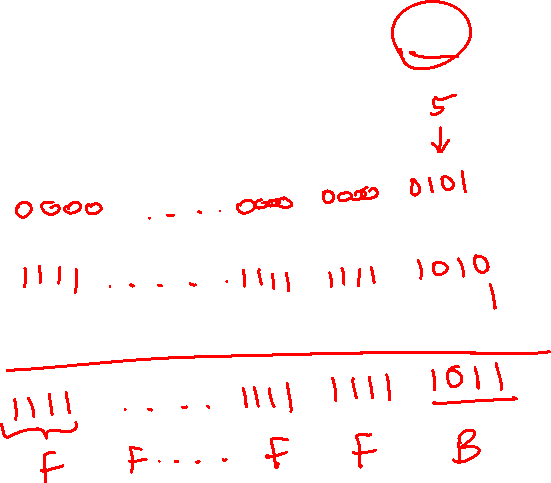 5
0000 ..... 0000 0000 0101
1111 ..... 1111 1111 1010
1
1111 ..... 1111 1111 1011
F F.... F F B